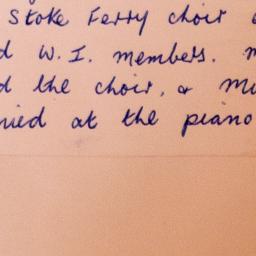 Stoke Ferry choir
d W.I. members.
d the choir, &
nied at the piano